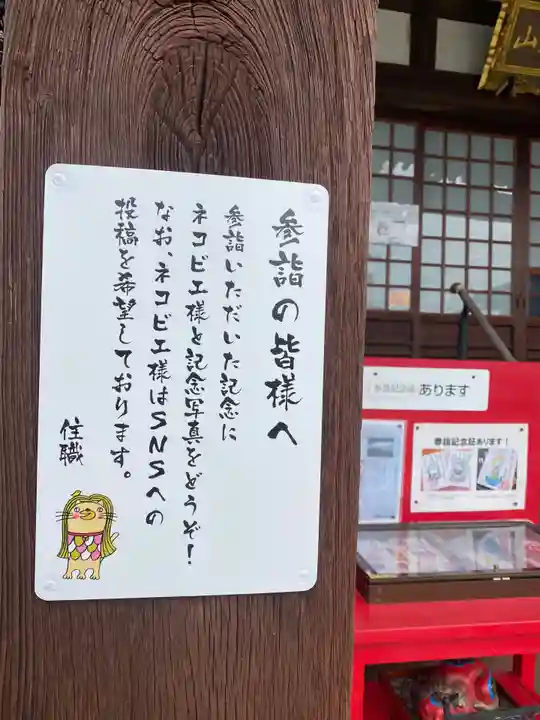 参詣の皆様へ
参詣いただいた記念に
ネコビエ様と記念写真をどうぞ！
なお、ネコビエ様はSNSへの
投稿を希望しております。
住職
山
あります
参詣記念証あります！